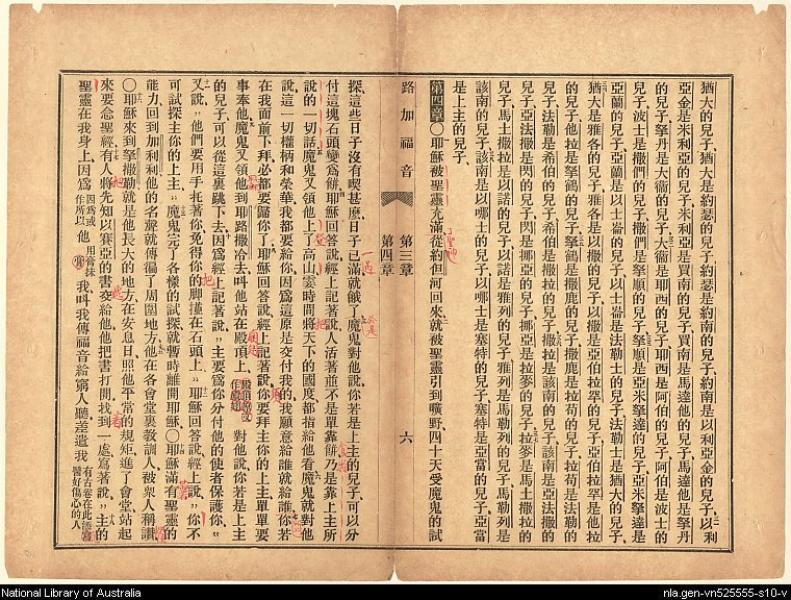 猶大的兒子、猶大是約瑟的兒子、約瑟是約南的兒子、約南是以利亞金的兒子、以利
亞金是米利亞的兒子、米利亞是買南的兒子、買南是馬達他的兒子、馬達他是拏丹
的兒子、拏丹是大衞的兒子、大衞是耶西的兒子、耶西是阿伯的兒子、阿伯是波士的
兒子、波士是撒們的兒子、撒們是拏順的兒子、拏順是亞米拏達的兒子、亞米拏達是
亞蘭的兒子、亞蘭是以士崙的兒子、以士崙是法勒士的兒子、法勒士是猶大的兒子、
猶大是雅各的兒子、雅各是以撒的兒子、以撒是亞伯拉罕的兒子、亞伯拉罕是他拉
的兒子、他拉是拏鶴的兒子、拏鶴是撒鹿的兒子、撒鹿是拉荀的兒子、拉荀是法勒的
兒子、法勒是希伯的兒子、希伯是撒拉的兒子、撒拉是該南的兒子、該南是亞法撒的
兒子、亞法撒是閃的兒子、閃是挪亞的兒子、挪亞是拉麥的兒子、拉麥是馬土撒拉的
兒子、馬土撒拉是以諾的兒子、以諾是雅列的兒子、雅列是馬勒列的兒子、馬勒列是
該南的兒子、該南是以哪士的兒子、以哪士是塞特的兒子、塞特是亞當的兒子、亞當
是上主的兒子、
第四章〇耶穌被聖靈充滿、從約但河回來、就被聖靈引到曠野、四十天受魔鬼的試
路加福音 第三章 第四章 六
探、這些日子沒有喫甚麼、日子已滿、就餓了、魔鬼對他說、你若是上主的兒子、可以分
付這塊石頭變爲餅、耶穌回答說、經上記著說、人活著並不是單靠餅、乃是靠上主所
說的一切話、魔鬼又領他上了高山、霎時間將天下的國度、都指給他看、魔鬼就對他
說、這一切權柄和榮華、我都要給你、因爲這原是交付我的、我願意給誰就給誰、你若
在我面前下拜、必都要歸你了、耶穌回答說、經上記著說、你要拜主你的上主、單單要
事奉他、魔鬼又領他到耶路撒冷去、叫他站在殿頂上、對他說、你若是上主
的兒子、可以從這裏跳下去、因爲經上記著說、主要爲你分付他的使者保護你、
又說、他們要用手托著你、免得你的脚撞在石頭上、耶穌回答說、經上說、你不
可試探主你的上主、魔鬼完了各樣的試探、就暫時離開耶穌、〇耶穌滿有聖靈的
能力、回到加利利、他的名聲就傳徧了周圍地方、他在各會堂裏敎訓人、被衆人稱讚、
〇耶穌來到拏撒勒、就是他長大的地方、在安息日照他平常的規矩、進了會堂、站起
來要念聖經、有人將先知以賽亞的書交給他、他把書打開、找到一處、寫著說、主的
聖靈在我身上、因爲因爲或作所以他用膏抹我、叫我傳福音給窮人聽、差遣我有古卷在此添寫醫好傷心的人
National Library of Australia
nla.gen-vn525555-s10-v